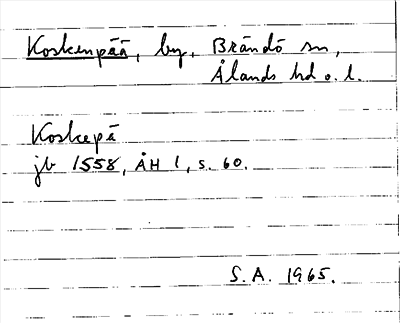 Koskenpää, by, Brändö sn,
Ålands hd o. l.
Koskepä
jb 1558, ÅH 1, s. 60.
S.A. 1965.